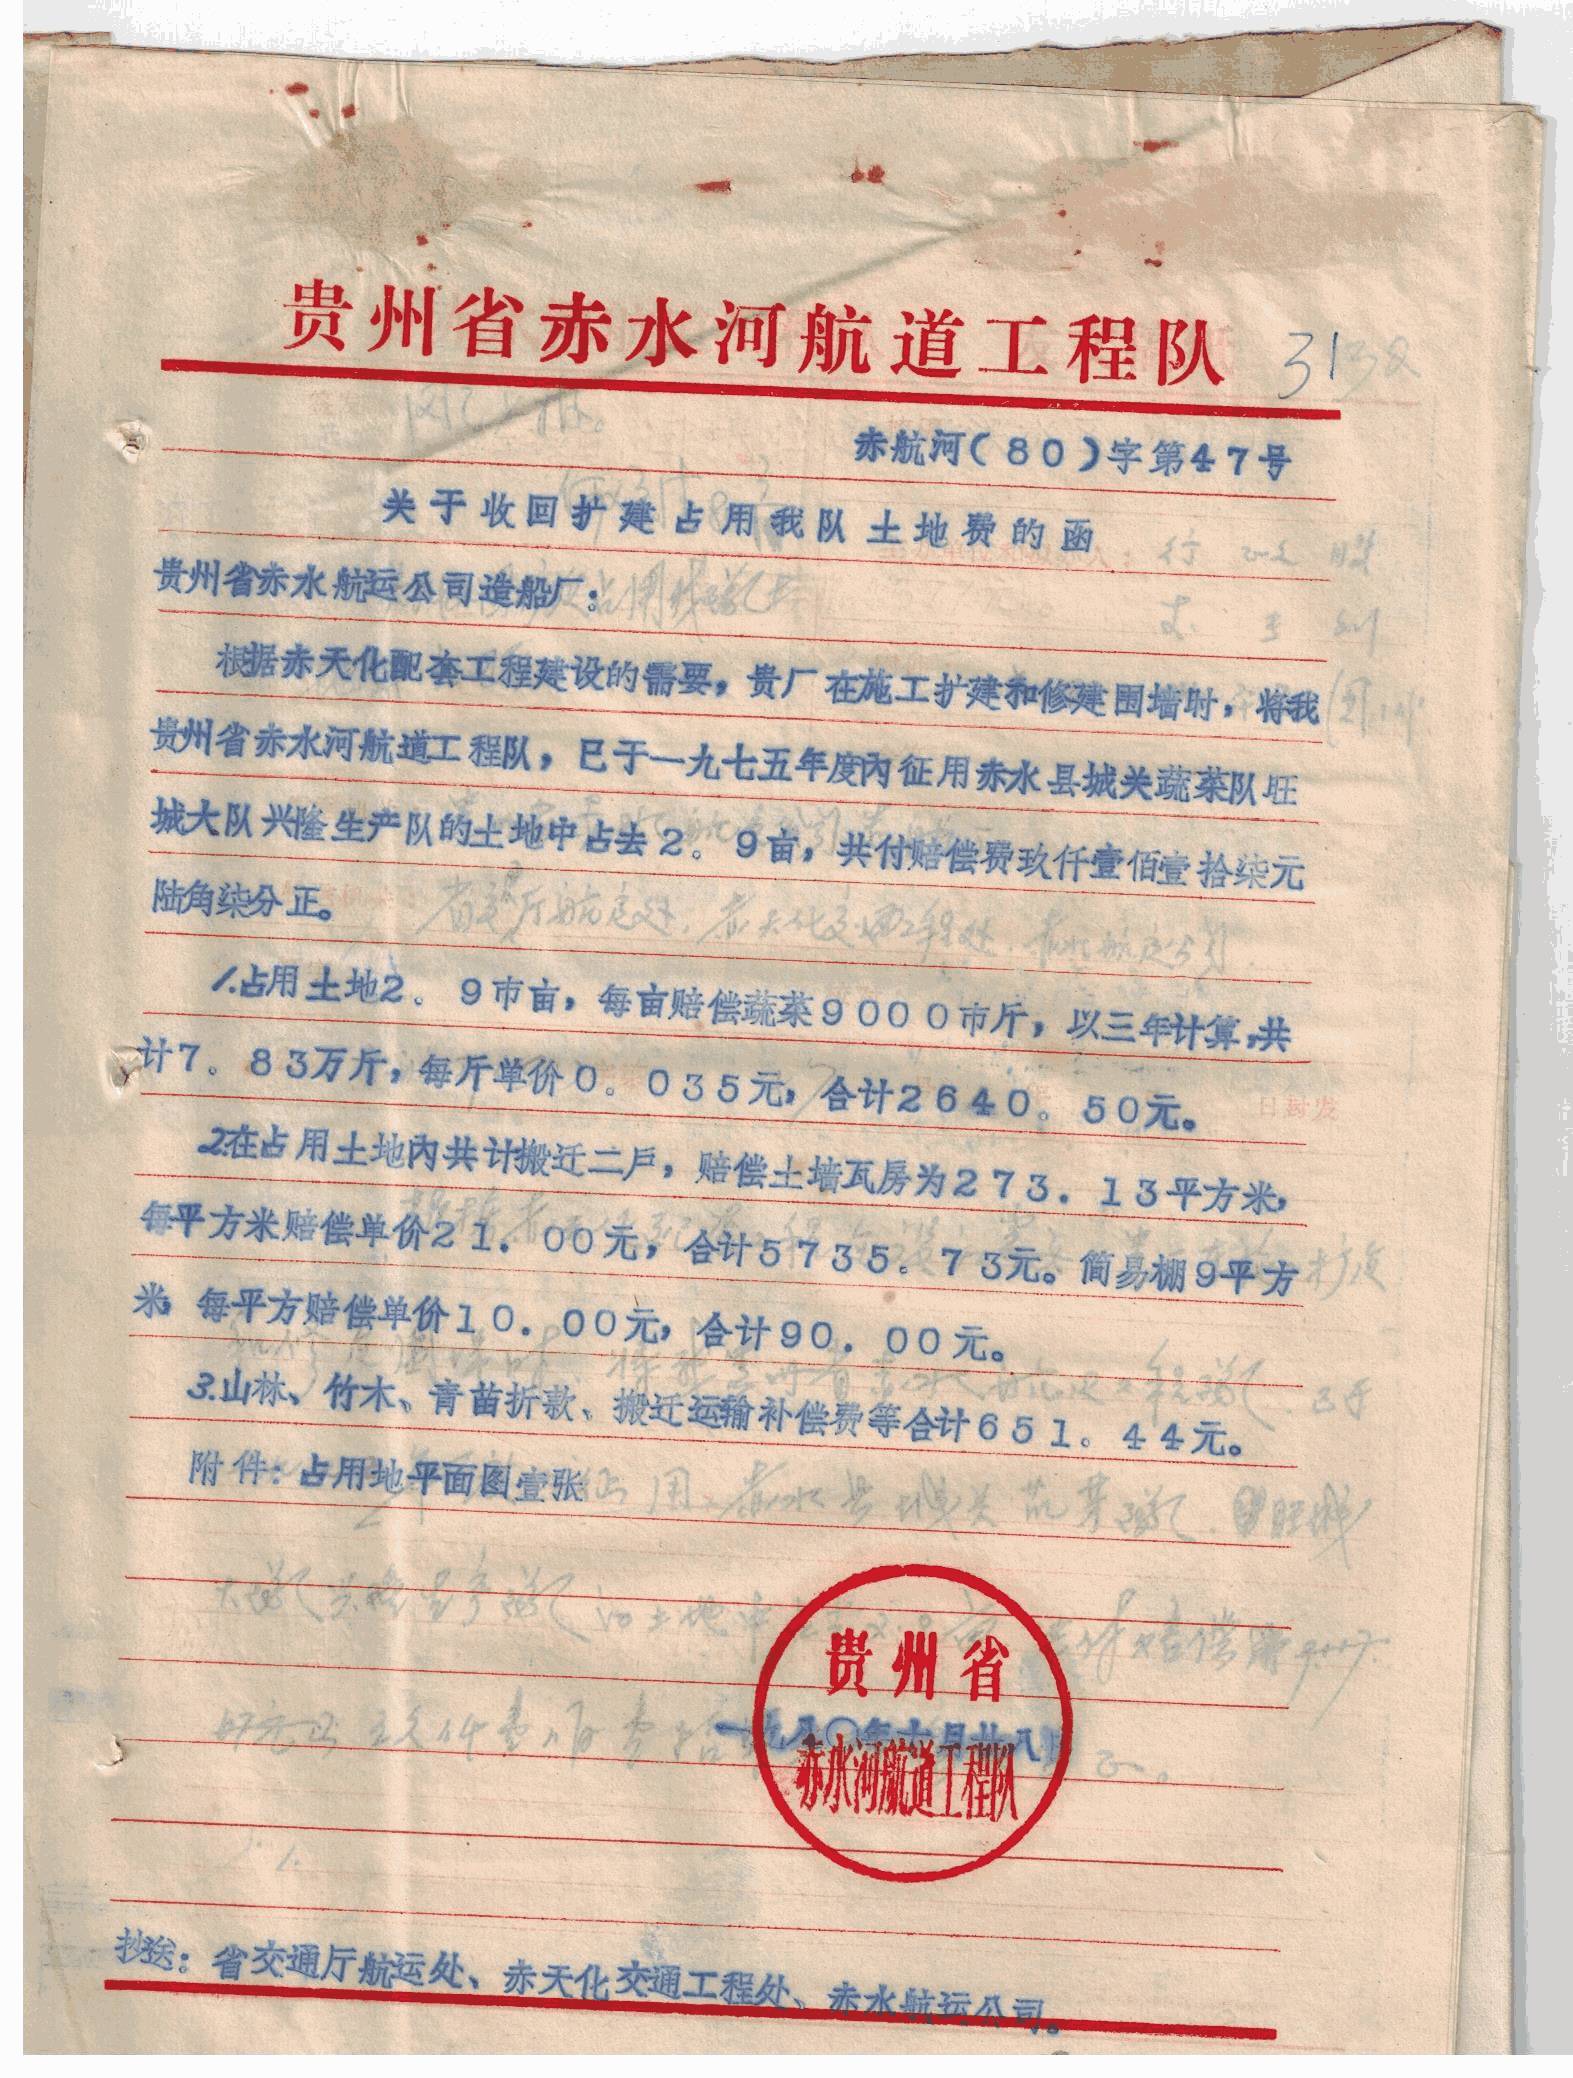 贵州省赤水河航道工程队
31
赤航河(80)字第47号
关于收回扩建占用我队土地费的函
贵州省赤水航运公司造船厂：
根据赤天化配套工程建设的需要，贵厂在施工扩建和修建围墙时，将我
贵州省赤水河航道工程队，已于一九七五年度内征用赤水县城关蔬菜队旺
城大队兴隆生产队的土地中占去2。9亩，共付赔偿费玖仟壹佰壹拾柒元
陆角柒分正。
1.占用土地2。9市亩，每亩赔偿蔬菜9000市斤，以三年计算，共
计7。83万斤，每斤单价0。035元，合计2640。50元。
2.在占用土地内共计搬迁二户，赔偿土墙瓦房为273.13平方米，
每平方米赔偿单价21.00元，合计5735。73元。简易棚9平方
米，每平方赔偿单价10.00元，合计90.00元。
3.山林、竹木、青苗折款、搬迁运输补偿费等合计651。44元。
附件：占用地平面图壹张
贵州省
一九八〇年六月廿八日
赤水河航道工程队
抄送：省交通厅航运处、赤天化交通工程处、赤水航运公司。